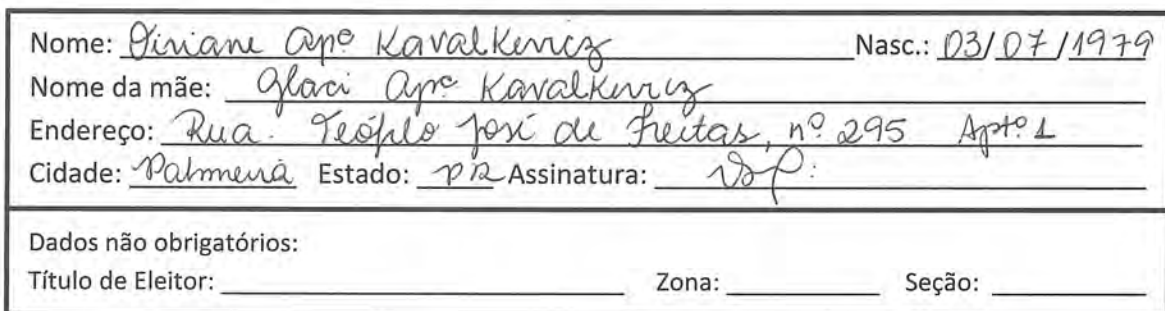 Nome: Viviane Apª Kavalkevicz Nasc.: 03/07/1979
Nome da mãe: Glaci Apª Kavalkevicz
Endereço: Rua. Teófilo José de Freitas, nº 295 Aptº 1
Cidade: Palmeira Estado: PR Assinatura:
Dados não obrigatórios:
Título de Eleitor: Zona: Seção: